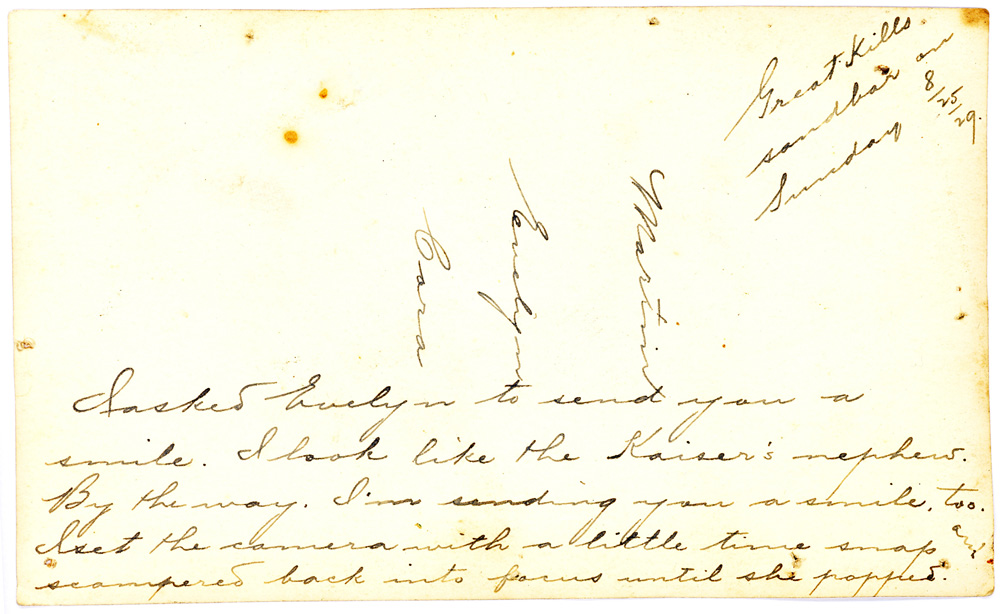 Great Kills
sandbar on
Sunday 8/25/29.
Martin
Evelyn
Cara
I asked Evelyn to send you a
smile. I look like the Kaiser's nephew.
By the way. I'm sending you a smile, too.
I set the camera with a little time snap and
scampered back into focus until she popped.